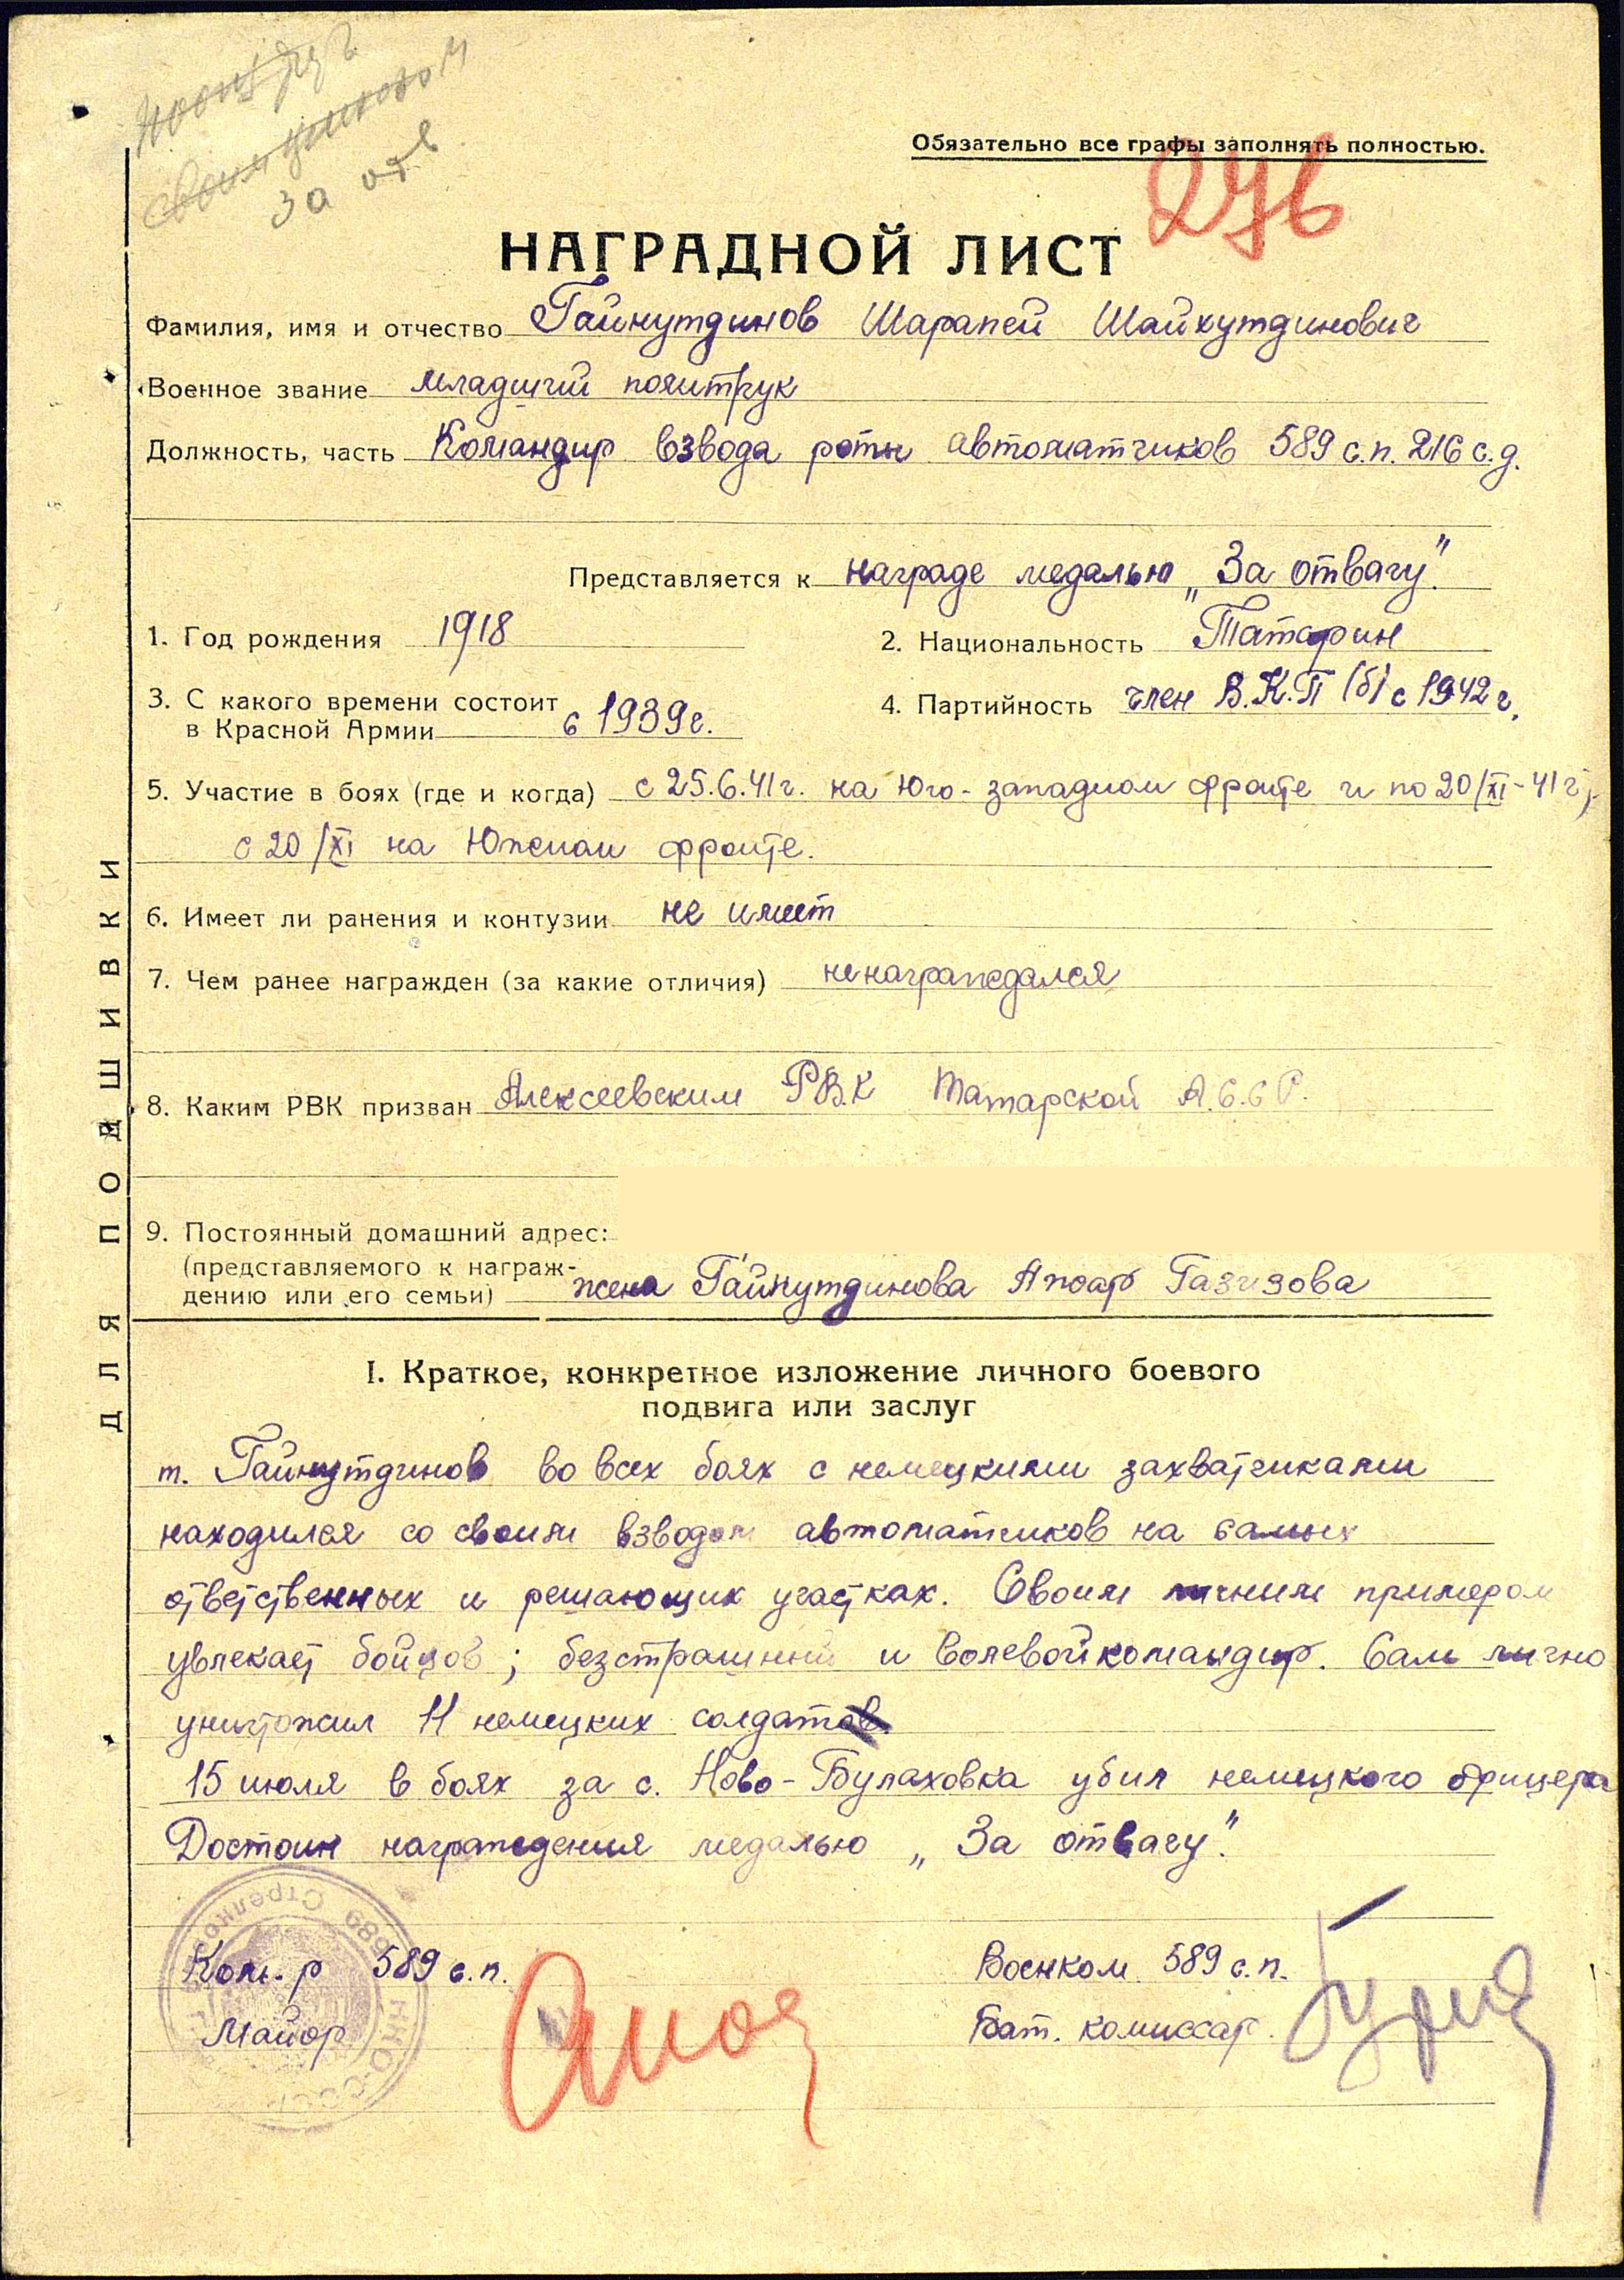 за отв
Обязательно все графы заполнять полностью.
НАГРАДНОЙ ЛИСТ
Фамилия, имя и отчество Гайнутдинов Шарапей Шайхутдинович
Военное звание младший политрук
Должность, часть Командир взвода роты автоматчиков 589 с.п. 216 с.д.
Представляется к награде медалью „За отвагу".
1. Год рождения 1918 2. Национальность Татарин
3. С какого времени состоит
в Красной Армии с 1939г. 4. Партийность член В.К.П(б) с 1942г.
5. Участие в боях (где и когда) с 25.6.41г. на Юго-западном фронте и по 20/XI-41г;
с 20/XI на Южном фронте.
6. Имеет ли ранения и контузии не имеет
7. Чем ранее награжден (за какие отличия) не награждался
8. Каким РВК призван Алексеевским Р.В.К Татарской А.С.С.Р.
9. Постоянный домашний адрес:
(представляемого к награж-
дению или его семьи) жена Гайнутдинова Газизова
I. Краткое, конкретное изложение личного боевого
подвига или заслуг
т. Гайнутдинов во всех боях с немецкими захватчиками
находился со своим взводом автоматчиков на самых
ответственных и решающих участках. Своим личным примером
увлекает бойцов; безстрашный и волевой командир. Сам лично
уничтожил 11 немецких солдат
15 июля в боях за с. Ново-Булаховка убил немецкого офицера
Достоин награждения медалью „За отвагу".
Ком-р 589 с.п. Военком 589 с.п.
Майор Бат. комиссар
ДЛЯ ПОДШИВКИ
589 Стрелков
НКО-СССР